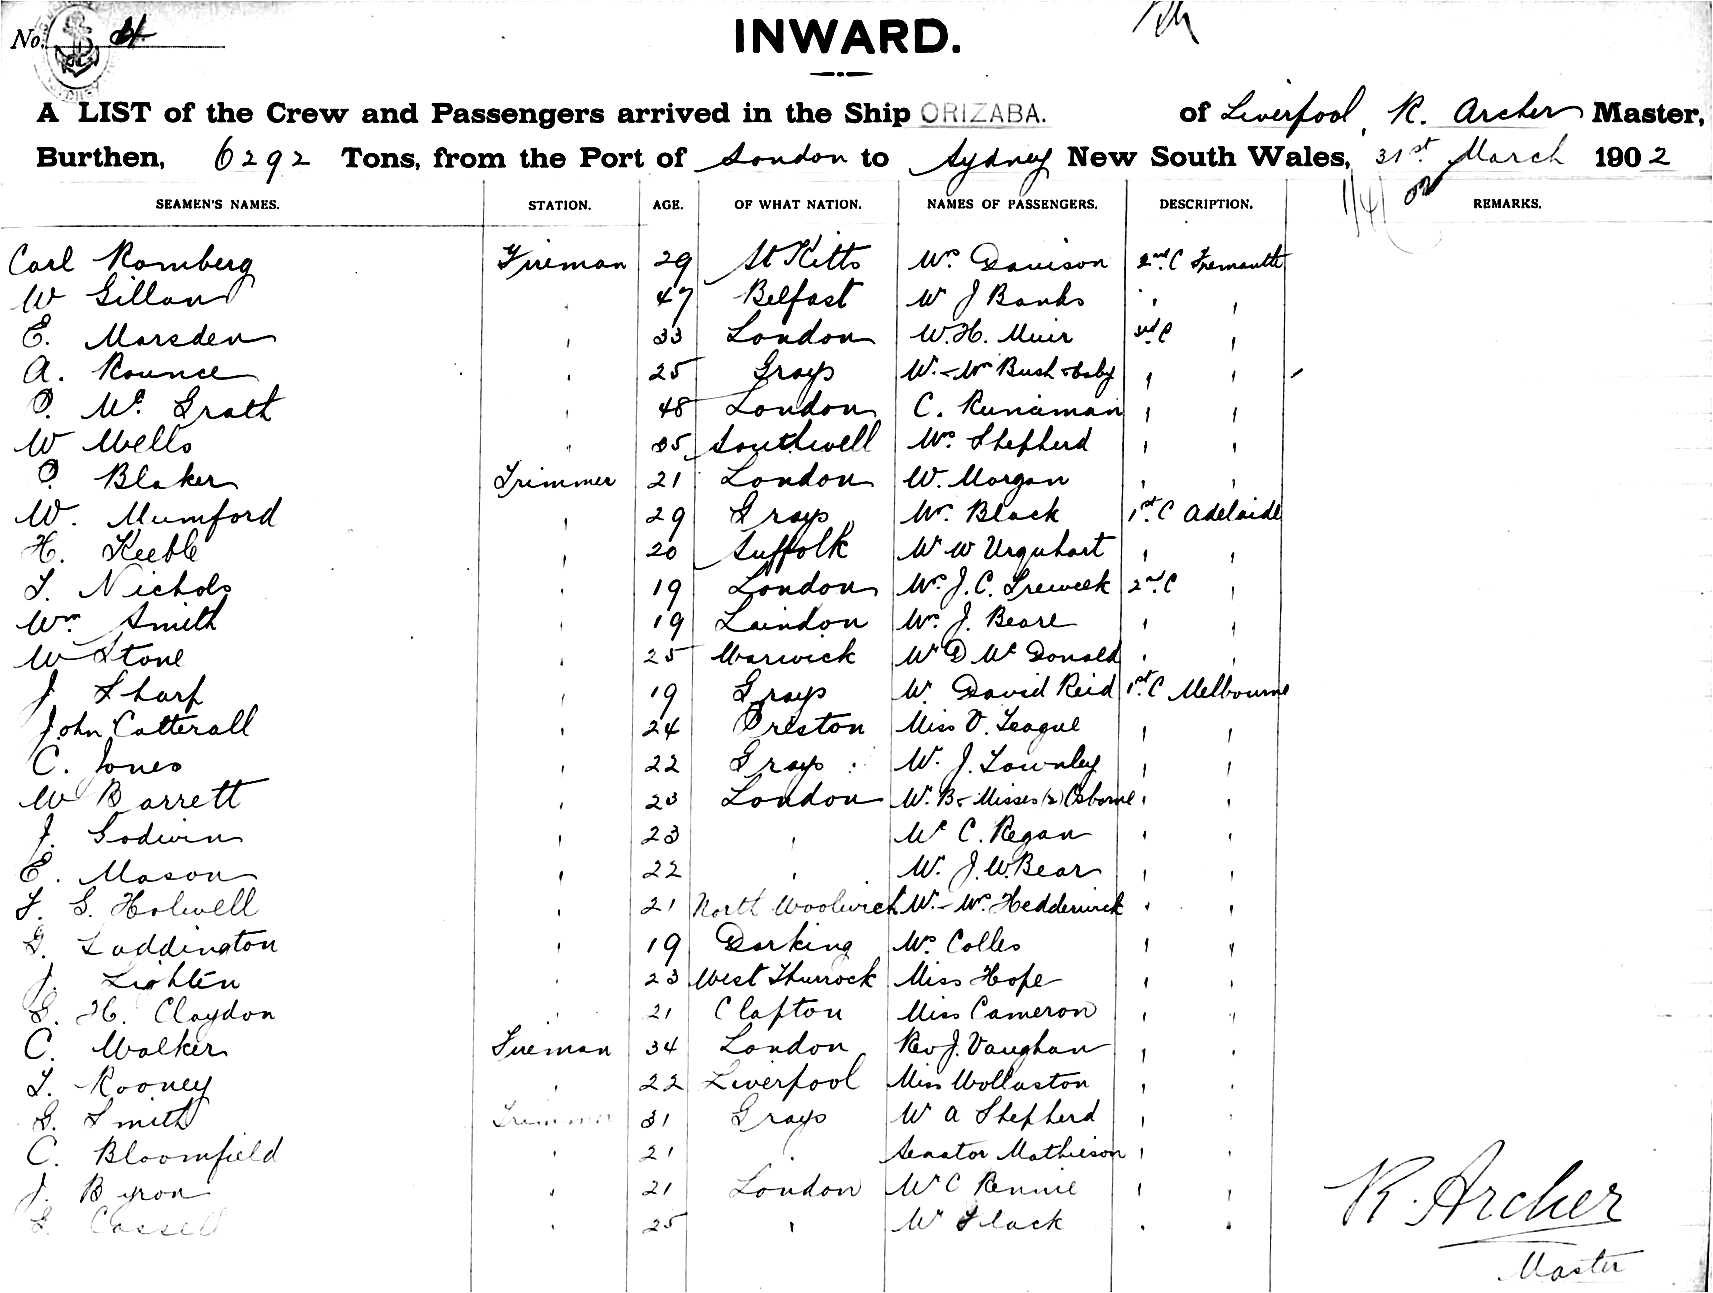 No. 4
INWARD.
A LIST of the Crew and Passengers arrived in the Ship ORIZABA. of Liverpool, R. Archer Master,
Burthen, 6292 Tons, from the Port of London to Sydney New South Wales, 31st March 1902
SEAMEN'S NAMES. STATION. AGE. OF WHAT NATION. NAMES OF PASSENGERS. DESCRIPTION. REMARKS.
Carl Romberg Fireman 29 St Kitts Mrs Davison 2nd C Fremantle
W Gillan " 47 Belfast Mr J Banks " "
E. Marsden " 33 London W.H. Muir 3rd C "
A. Rounce " 25 Grays Mr & Mrs Bush & baby " "
P. McGrath " 48 London C. Runciman " "
W Wells " 35 Southwell Mrs Shepherd " "
P. Blaker Trimmer 21 London W. Morgan " "
W. Mumford " 29 Grays Mr. Black 1st C Adelaide
H. Keeble " 20 Suffolk Mr W Urquhart " "
T. Nichols " 19 London Mrs J. C. Treweek 2nd C "
Wm Smith " 19 Laindon Mrs J. Beare " "
W Stone " 25 Warwick Mr D McDonald " "
J Sharp " 19 Grays Mr. David Reid 1st C Melbourne
John Catterall " 24 Preston Miss V. Teague " "
C. Jones " 22 Grays Mr. J. Townley " "
W Barrett " 23 London Mr. B & Misses (2) Osborne " "
J. Godwin " 23 " Mr C. Regan " "
E. Mason " 22 " Mr. J. W. Bear " "
F. G. Holwell " 21 North Woolwich Mr. & Mrs Hedderwick " "
G. Loddington " 19 Dorking Mrs Colles " "
J. Lighten " 23 West Thurrock Miss Hope " "
G. H. Claydon " 21 Clapton Miss Cameron " "
C. Walker Fireman 34 London Rev J. Vaughan " "
T. Rooney " 22 Liverpool Miss Wollaston " "
G. Smith Trimmer 31 Grays Mr A Shepherd " "
C. Bloomfield " 21 " Senator Matheson " "
J. Byron " 21 London Mr C Rennie " "
G. Cassell " 25 " Mr Slack " "
R. Archer
Master